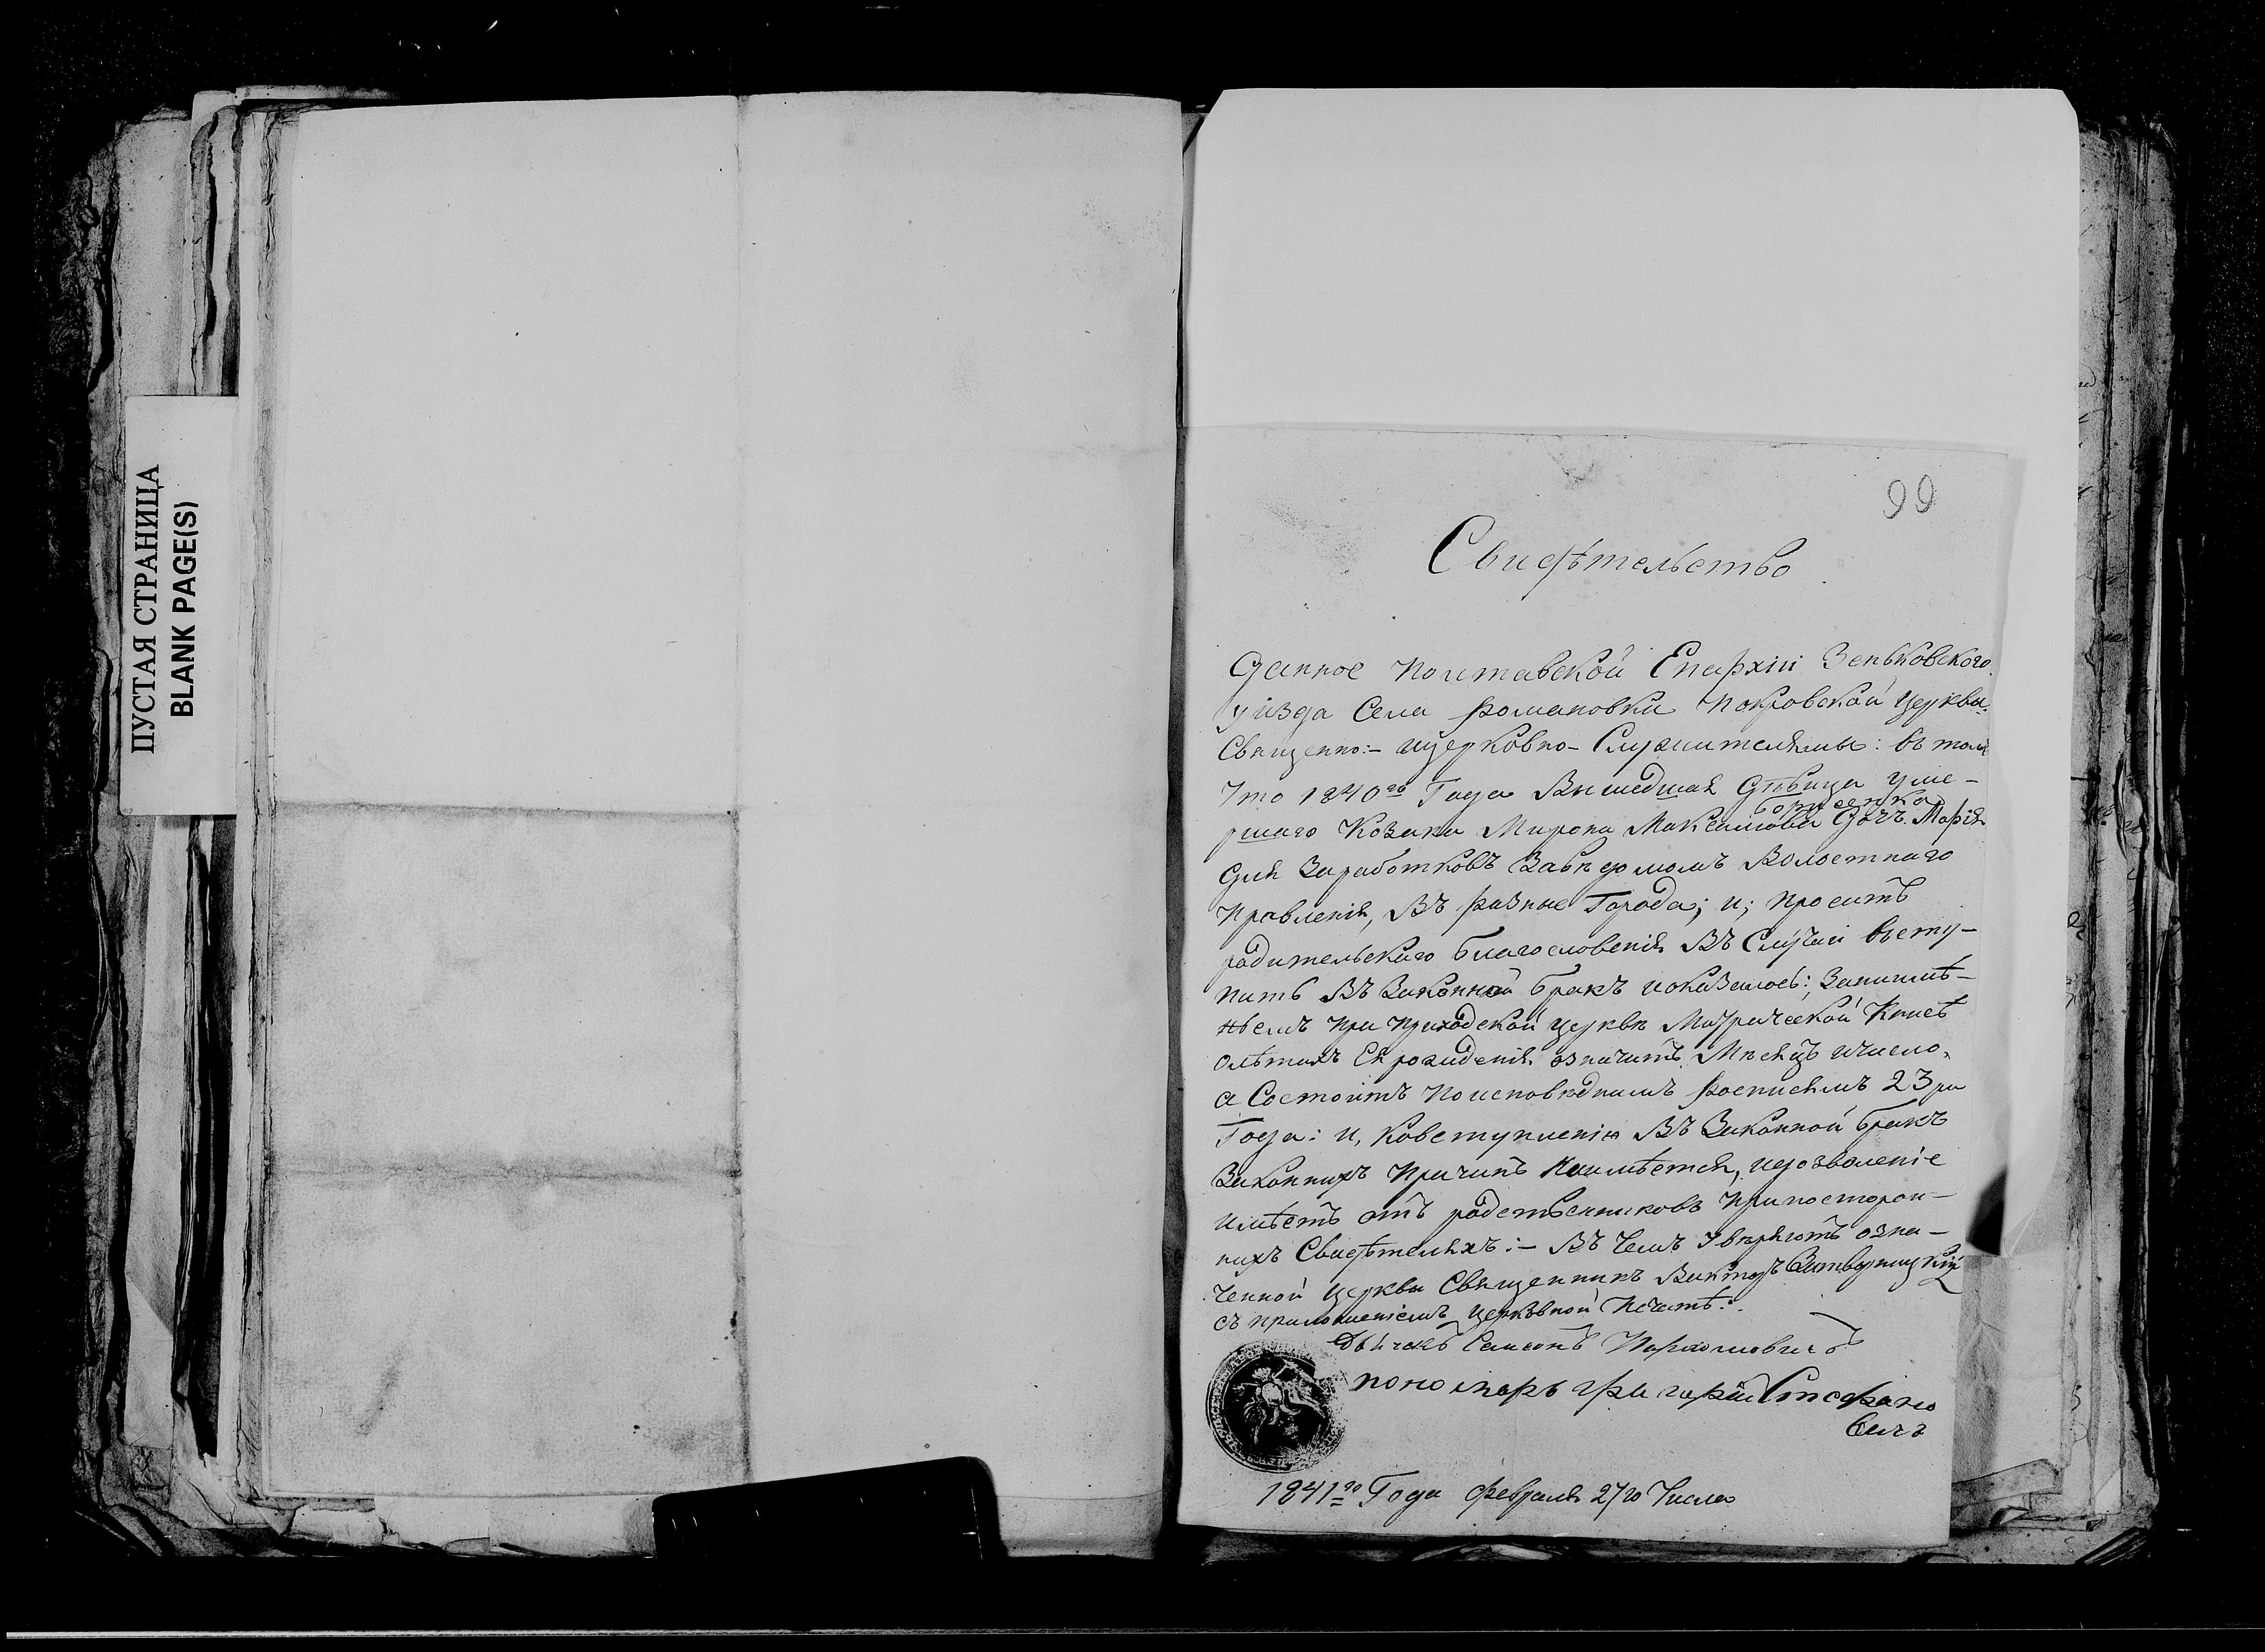 ПУСТАЯ СТРАНИЦА
BLANK PAGE(S)
99
Свидѣтельство
Данное Полтавской Епархіи Зеньковского
уѣзда Села Романовки Покровской церкви
Священно:- ицерковно-Служителями: въ том
Что 1840го Года Вышедшая Дѣвица уме-
ршаго Козака Мирона Максимова Борисенка Дочь Марія
для Заработковъ Завѣдомомъ Волостнаго
Правленія, Въ разные Города; и; проситъ
радительскаго благословенія Въ Случаи всту-
пить Въ Законной бракъ
при Приходской церквѣ Метрической Книгѣ
олѣтахъ Ея рождения означитъ Мѣсяцъ ичисло,
а Состоитъ Поисповѣднимъ росписямъ 23 ри
Года: и, Ковступленію Въ Законной бракъ
Законнихъ Причинъ Неимѣется, идозволеніе
имѣетъ отъ родственниковъ Припосторон-
нихъ Свидѣтеляхъ:- Въ Чемъ Увѣряютъ озна-
ченной Церкви Священникъ Викторъ
съ приложеніемъ Церковной Печатѣ:.
Дьячекъ Самсонъ Пархомовичъ
пономарь григорій Стефано
вичъ
1841го Года февраля 27го Числа